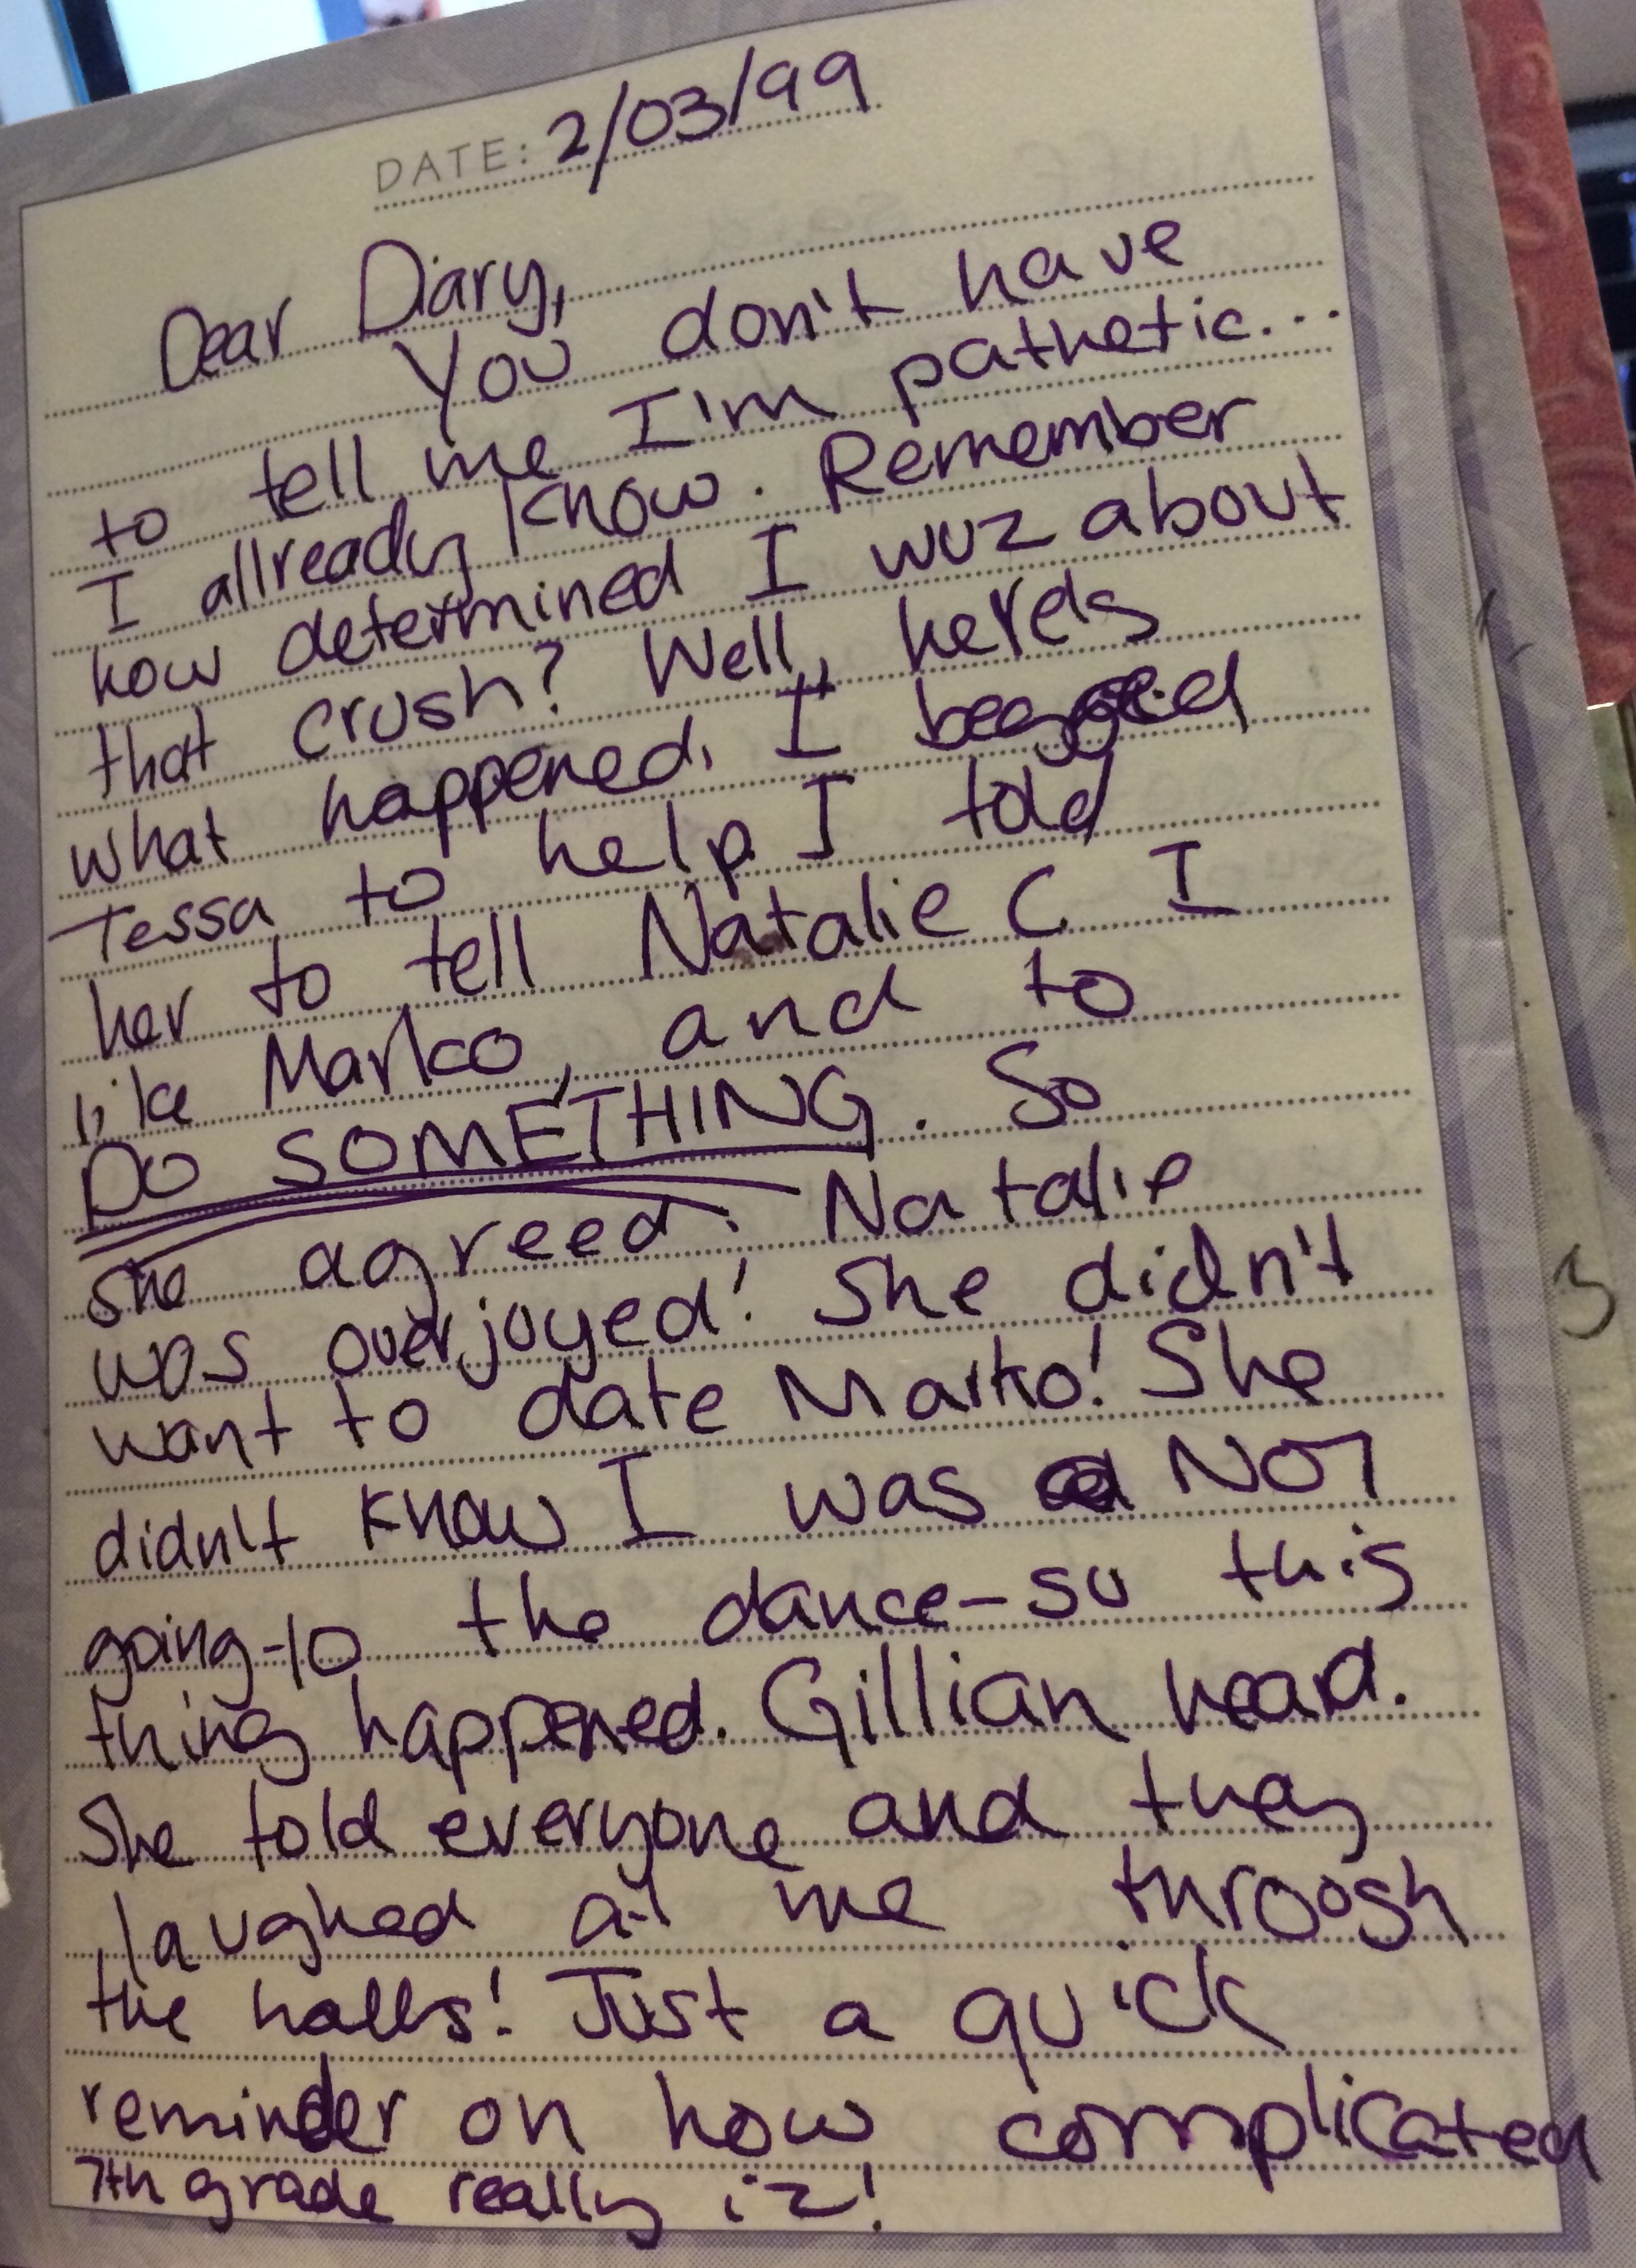 DATE: 2/03/99
Dear Diary,
You don't have
to tell me I'm pathetic...
I allready know. Remember
how determined I wuz about
that crush? Well, here's
what happened. I begged
Tessa to help. I told
her to tell Natalie C. I
like Marko, and to
DO SOMETHING. So
she agreed. Natalie
was overjoyed! She didn't
want to date Marko! She
didn't know I was NOT
going to the dance-so this
thing happened. Gillian heard.
She told everyone and they
laughed at me throogh
the halls! Just a quick
reminder on how complicated
7th grade really iz!